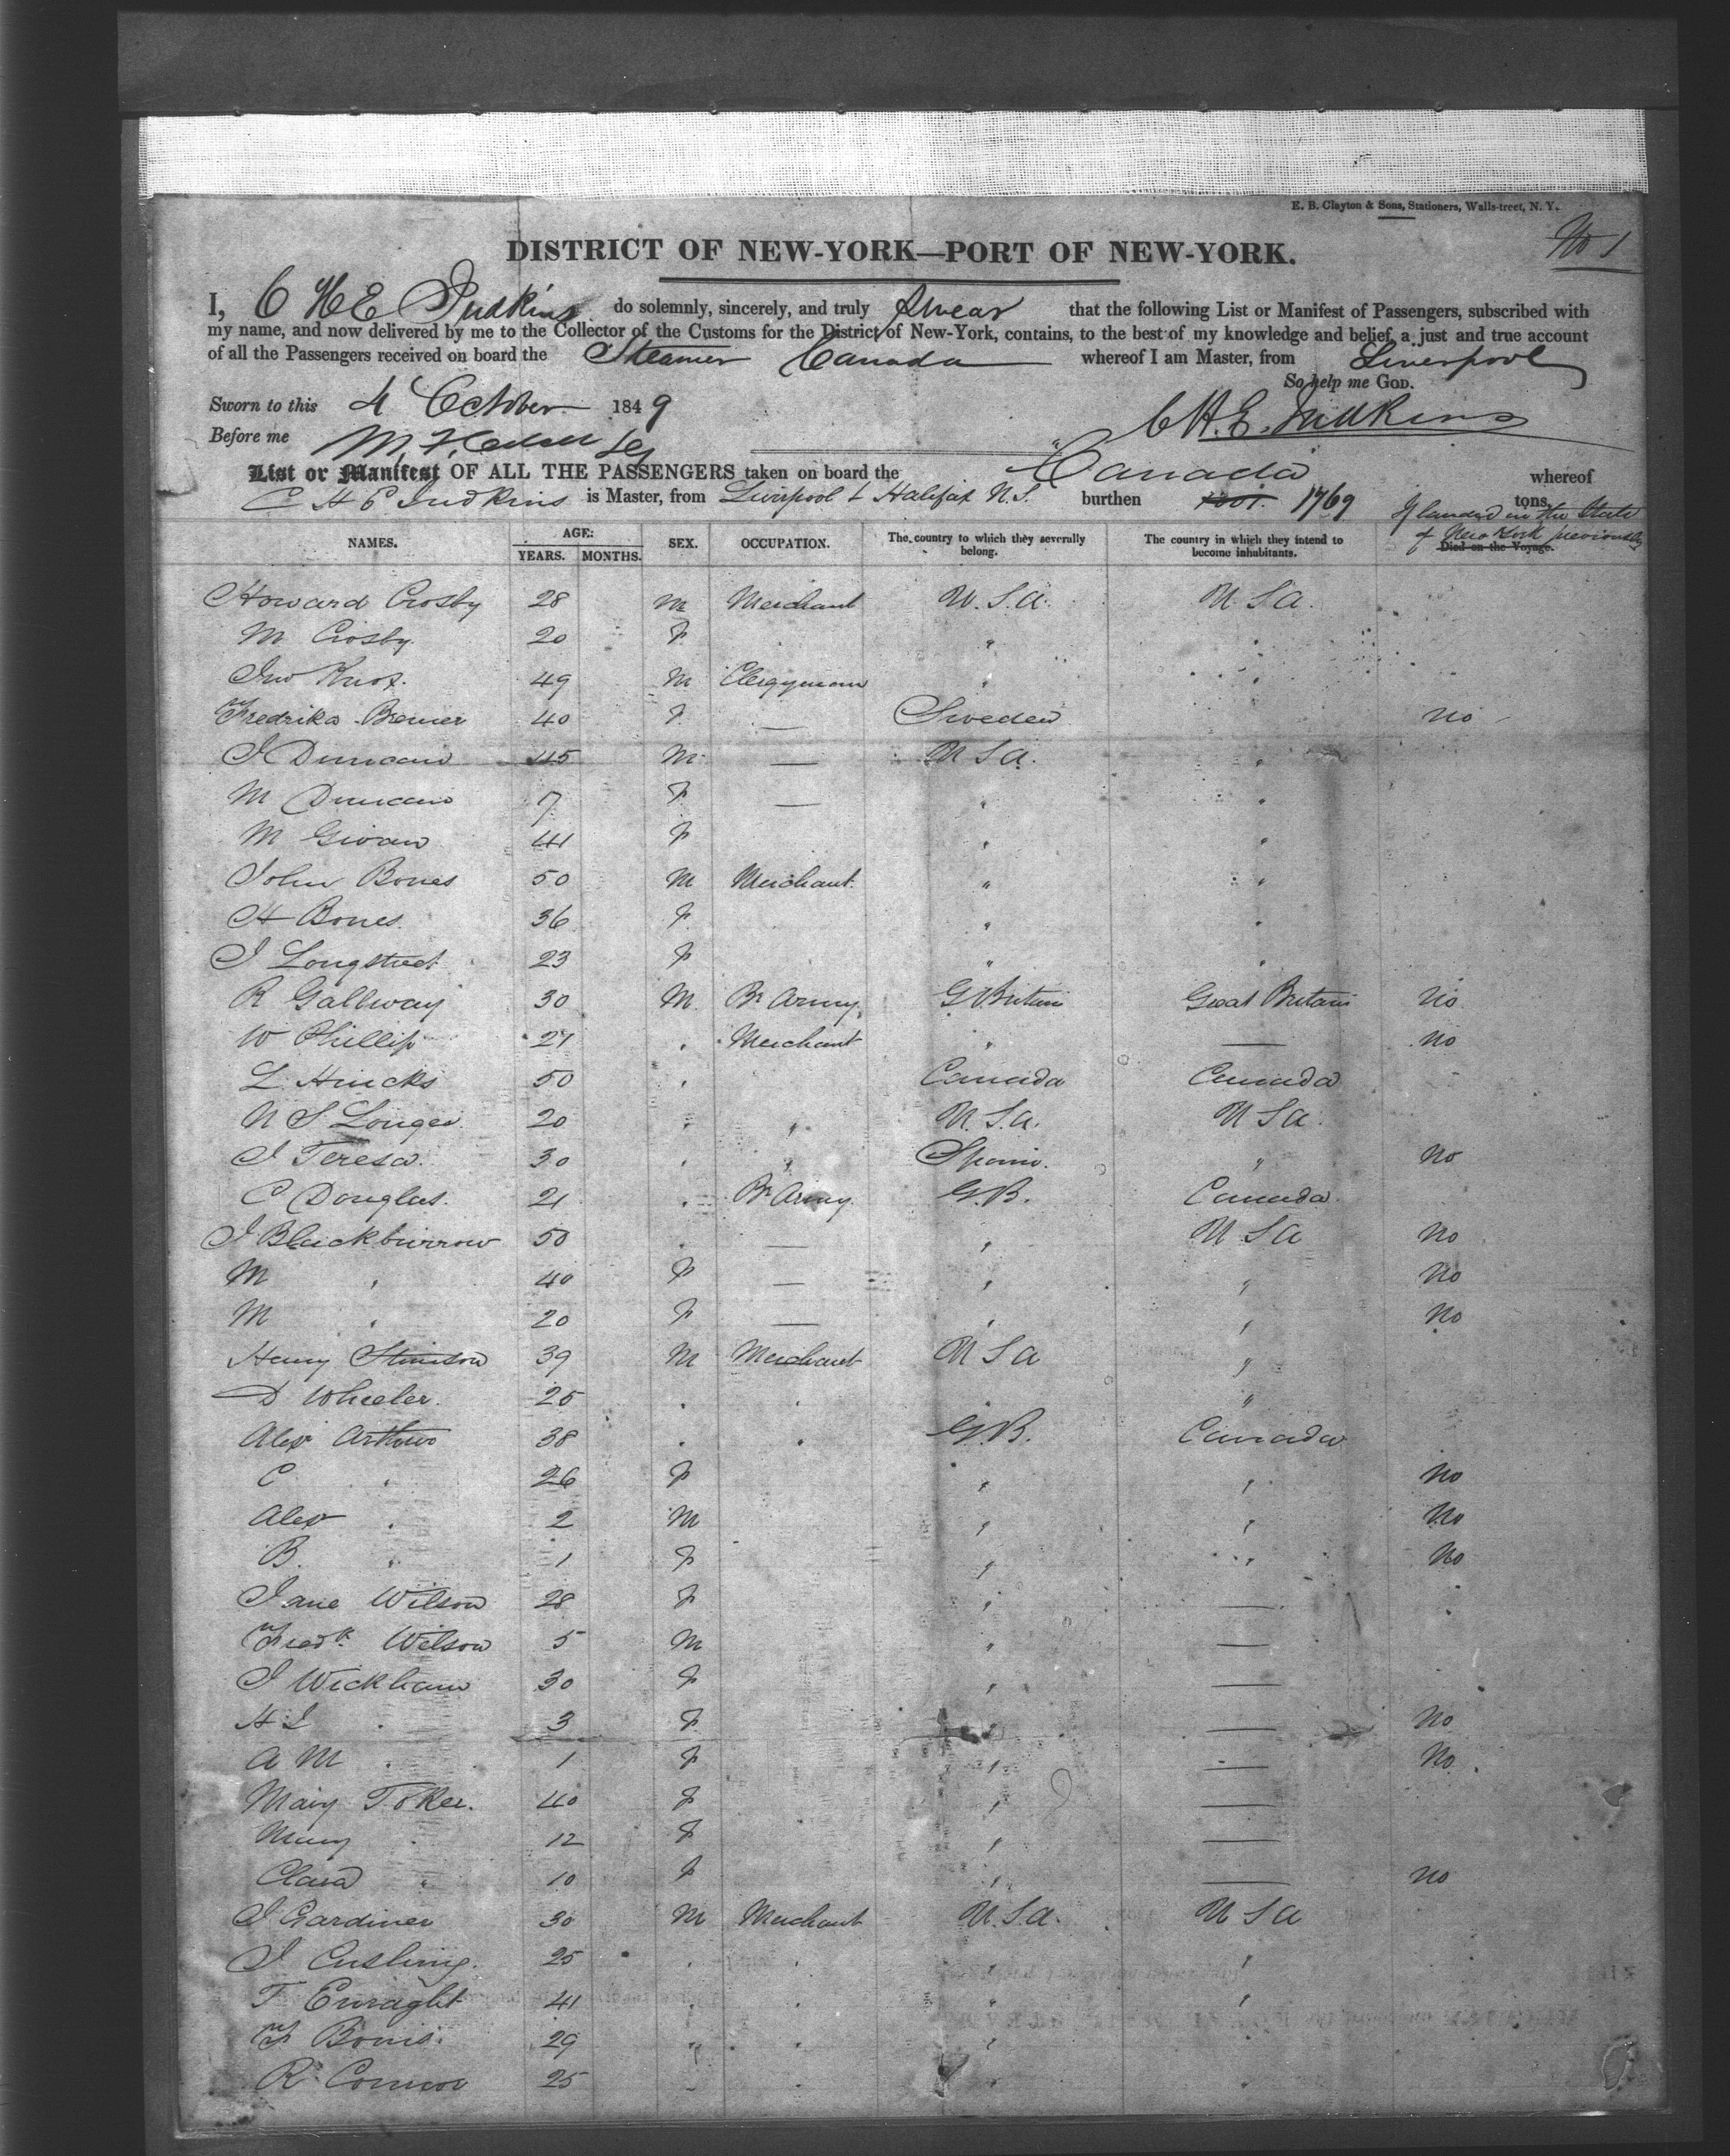 E. B. Clayton & Sons, Stationers, Walls-treet, N. Y.
No 1
DISTRICT OF NEW-YORK—PORT OF NEW-YORK.
I, C H E Judkins do solemnly, sincerely, and truly Swear that the following List or Manifest of Passengers, subscribed with
my name, and now delivered by me to the Collector of the Customs for the District of New-York, contains, to the best of my knowledge and belief, a just and true account
of all the Passengers received on board the Steamer Canada whereof I am Master, from Liverpool
So help me GOD.
Sworn to this 4 October 1849
C H. E. Judkins
Before me
List or Manifest OF ALL THE PASSENGERS taken on board the Canada whereof
C H E Judkins is Master, from Liverpool & Halifax N.S. burthen 1769 tons,
If landed in the State
of New York previously
NAMES. AGE: YEARS. MONTHS. SEX. OCCUPATION. The country to which they severally belong. The country in which they intend to become inhabitants. Died on the Voyage.
Howard Crosby 28 M Merchant U.S.A. U S A.
M Crosby 20 F " "
Jno Knox 49 M Clergyman " "
Fredrika Bremer 40 F — Sweden No
J Duncan 45 M — U S A. "
M Duncan 7 F — " "
M Givan 41 F " "
John Bones 50 M Merchant " "
H Bones 36 F " "
J Longstreet 23 F " "
R Gallway 30 M Br Army G Britain Great Britain No
W Phillip 27 " Merchant " — No
L Hincks 50 " Canada Canada
N S Longer 20 " " U.S.A. U S A.
J Teresa 30 " " Spain " No
C Douglas 21 " Br Army G.B. Canada
J Blackburrow 50 " — " U S A No
M " 40 F — " " No
M " 20 F — " " No
Henry Stimson 39 M Merchant U S A "
D Wheeler 25 " " "
Alex Arthur 38 " " G.B. Canada
C " 26 F " " No
Alex " 2 M " " No
B. " 1 F " " No
Jane Wilson 28 F " —
Fredk Wilson 5 M " —
J Wickham 30 F " —
H I " 3 F " — No
A M " 1 F " — No
Mary Toker 40 F " —
Mary " 12 F " —
Clara " 10 F " — No
J Gardiner 30 M Merchant U.S.A. U S A
J Cushing 25 " " " "
T Enraght 41 " " " "
F Bonis 29 " " "
R Connor 25 " " " "